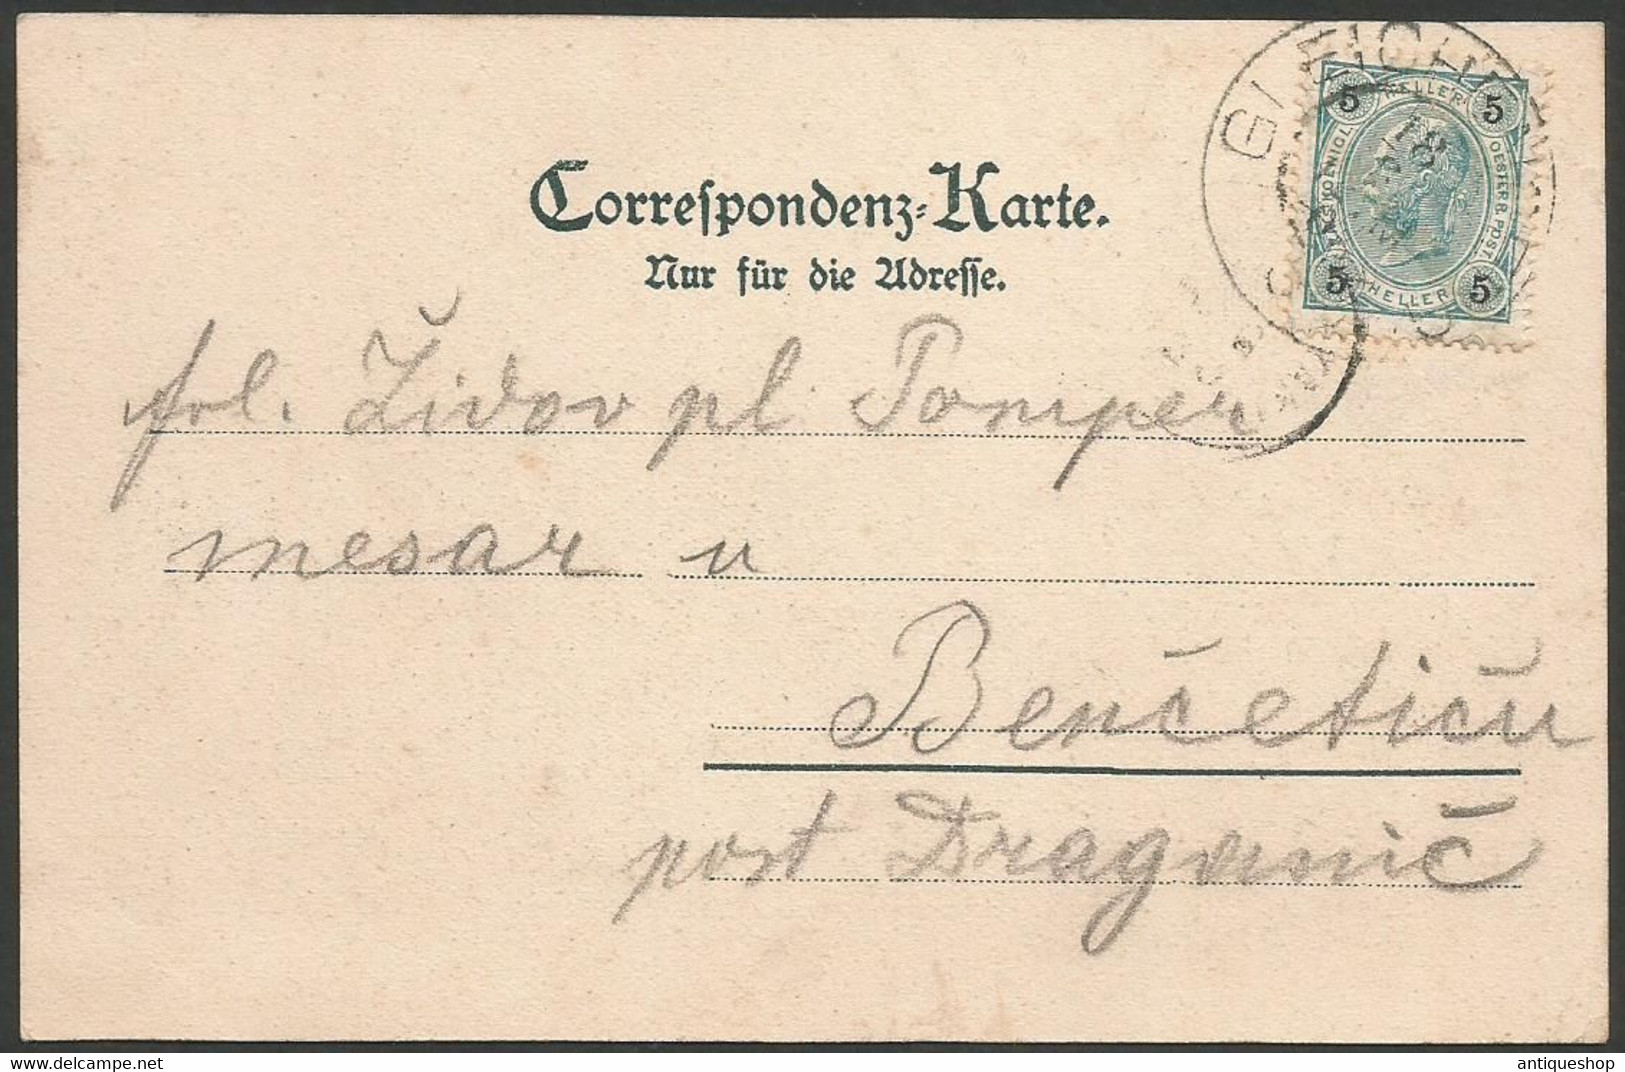 Correspondenz-Karte.
Nur für die Adresse.
HELLER
5 5
KAISL. KOENIGL. OESTERR. POST.
5 5
HELLER
GLEICHENBERG
frl. Židov pl Pomper
mesar u
Benčetiću
post Draganić
delcampe.net
antiqueshop